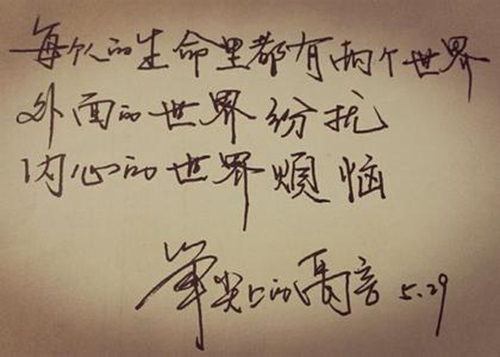 每个人的生命里都有两个世界
外面的世界纷扰
内心的世界煩恼
笔尖上的高音 5.29